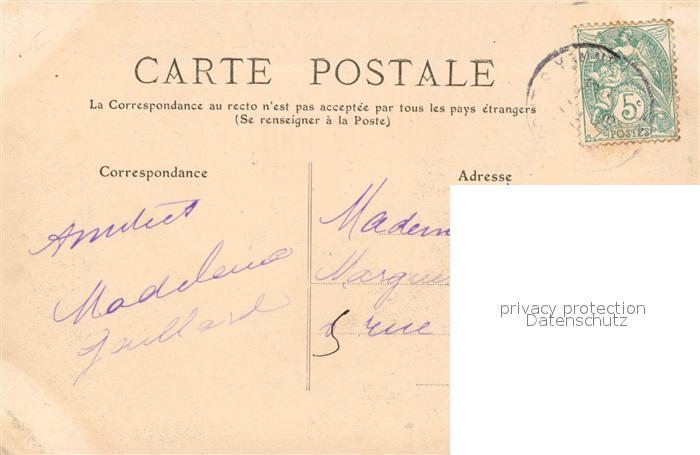 CARTE POSTALE
La Correspondance au recto n'est pas acceptée par tous les pays étrangers
(Se renseigner à la Poste)
5c
POSTES
Correspondance
Adresse
Madem
Margue
rue
Madeleine
Gaillard
privacy protection
Datenschutz